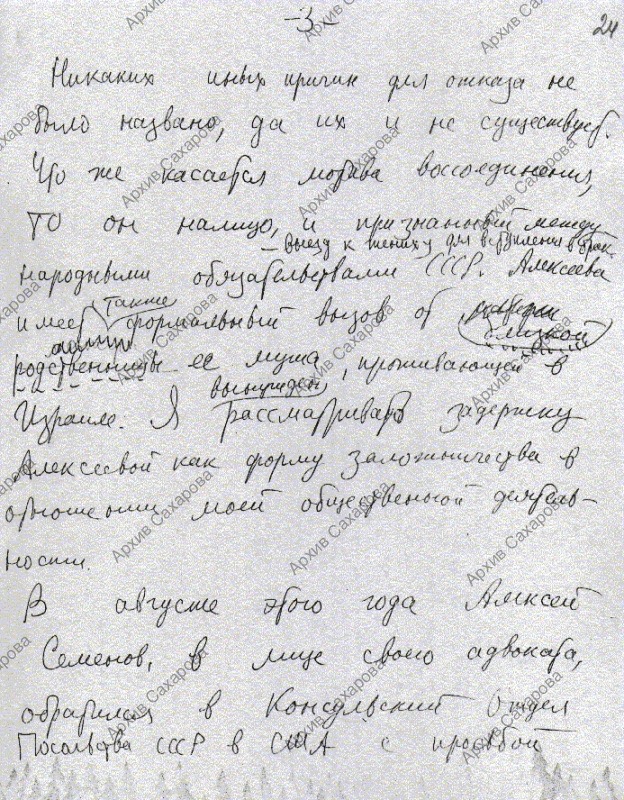 -3-
24
Никаких иных причин для отказа не
было названо, да их и не существует.
Что же касается мотива воссоединения,
то он налицо, и признанный между
- выезд к жениху для вступления в брак.
народными обязательствами СССР. Алексеева
также
имеет формальный вызов от
близкой
родственницы ее мужа, проживающей в
вынужден
Израиле. Я рассматривать задержку
Алексеевой как форму заложничества в
отношении моей общественной деятель-
ности.
В августе этого года Алексей
Семенов, в лице своего адвоката,
обратился в Консульский отдел
Посольства СССР в США с просьбой
Архив Сахарова